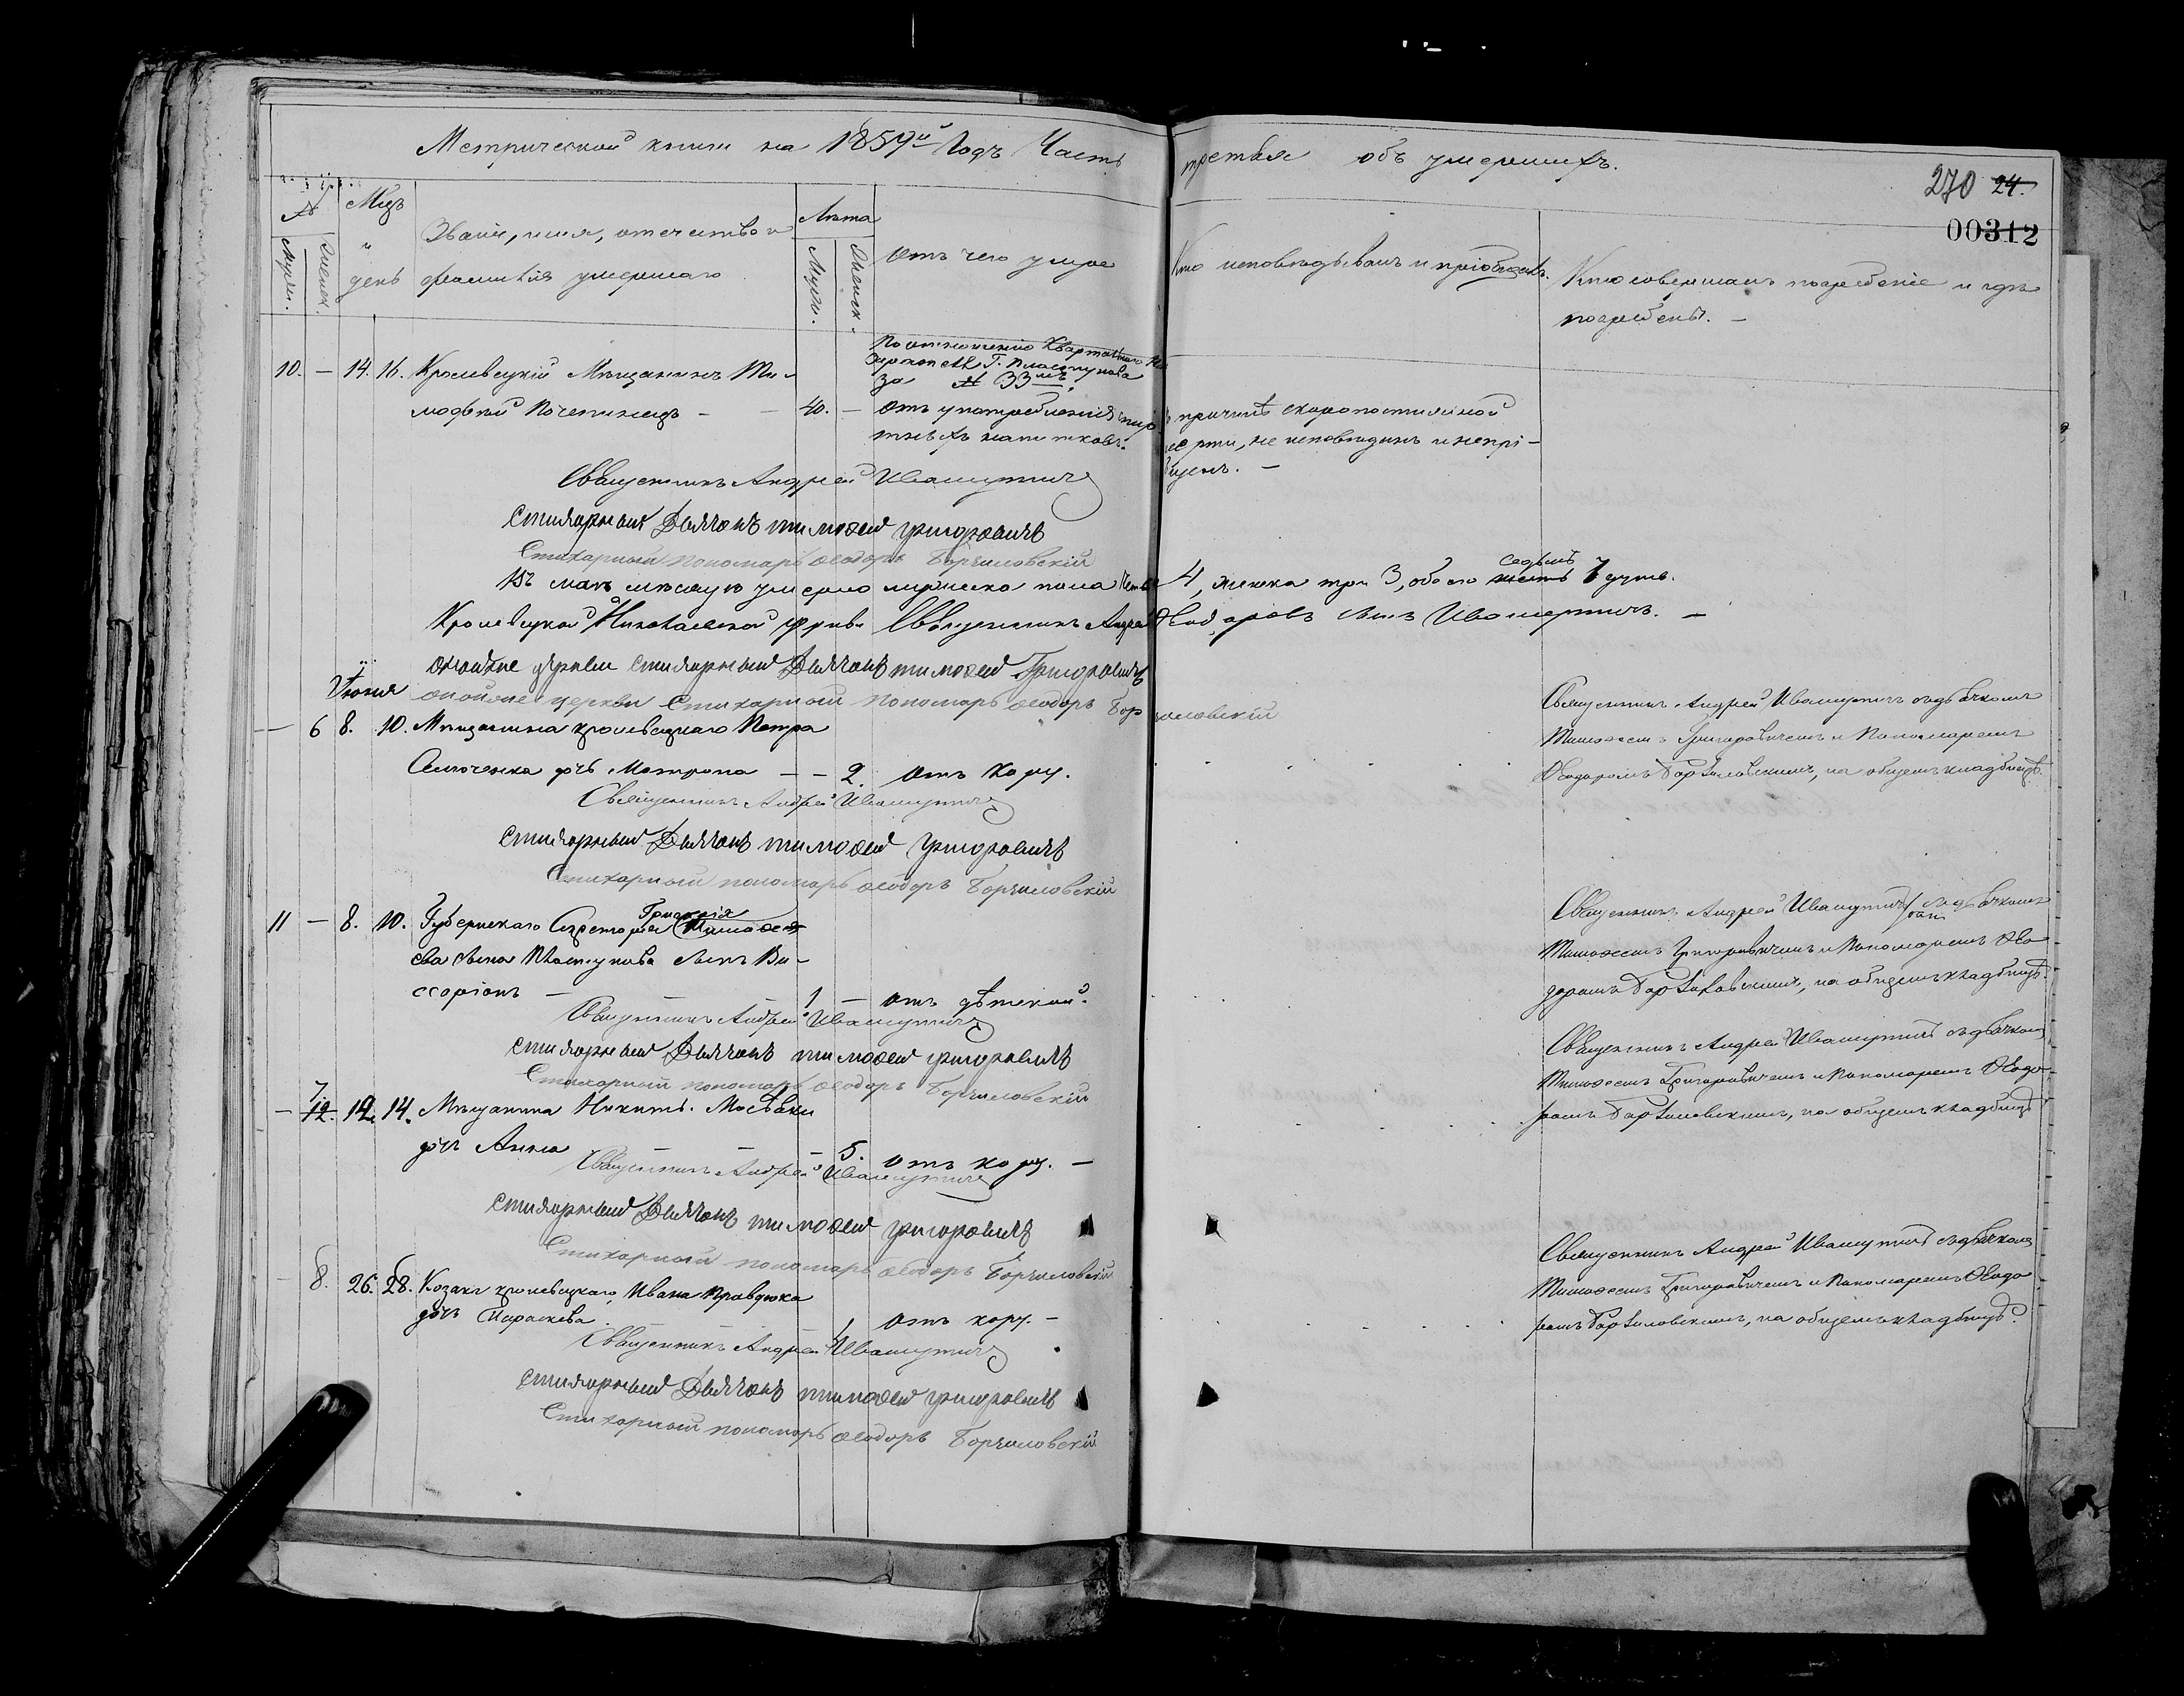 Метрической книги на 1859й Годъ Часть третья объ умершихъ.
270 24.
00312
№
Мцъ и день
Званіе, имя, отечество и фамилія умершаго
Лѣта
Отъ чего умре
Кто исповѣдывалъ и пріобщалъ.
Кто совершалъ погребеніе и гдѣ
погребены. —
Мужес.
Женск.
Мужес.
Женск.
По отношенію Квартальнаго
за № 33мъ
10. — 14. 16. Кролевецкій Мѣщанинъ Ти-
мофѣй — 40. — Отъ употребленія спир-
тныхъ напитковъ. причинѣ скоропостижной
смерти, не исповѣданъ и непрі-
бщенъ. —
Священникъ Андрей Ивашутичъ
Стихарный Дьячокъ Тимофей Григоровичъ
Стихарный пономарь Феодоръ Борчиловскій
Въ маѣ мѣсяцѣ умерло мужеска пола 4, женска три 3, обоего седмъ 7 душъ.
Кролевецкой Николаевской церкви Священникъ Андрей Феодоровъ сынъ Ивашутичъ. —
Онойже церкви Стихарный Дьячокъ Тимофей Григоровичъ
Іюня онойже церкви Стихарный пономарь Феодоръ Борчиловскій
— 6 8. 10. Мѣщанина кролевецкаго Петра
дочь Матрона — — 2. Отъ кору.
Священникъ Андрей Ивашутичъ съ дьячкомъ
Тимофеемъ Григоровичемъ и Пономаремъ
Феодоромъ Борчиловскимъ, на общемъ кладбищѣ.
Священникъ Андрей Ивашутичъ
Стихарный Дьячокъ Тимофей Григоровичъ
Стихарный пономарь Феодоръ Борчиловскій
11 — 8. 10. Губернскаго Секретаря Григорія
сына сынъ Ви-
ссаріонъ — 1 — отъ дѣтской.
Священникъ Андрей Ивашутичъ съ дьячкомъ
Тимофеемъ Григоровичемъ и Пономаремъ Фео-
доромъ Борчиловскимъ, на общемъ кладбищѣ.
Священникъ Андрей Ивашутичъ
Стихарный Дьячокъ Тимофей Григоровичъ
Стихарный пономарь Феодоръ Борчиловскій
— 7. 12. 12. 14. Мѣщанина Никиты
дочь Анна — — 5. Отъ кору. —
Священникъ Андрей Ивашутичъ съ дьячкомъ
Тимофеемъ Григоровичемъ и Пономаремъ Феодо-
ромъ Борчиловскимъ, на общемъ кладбищѣ
Священникъ Андрей Ивашутичъ
Стихарный Дьячокъ Тимофей Григоровичъ
Стихарный пономарь Феодоръ Борчиловскій
— 8. 26. 28. Козака кролевецкаго Ивана Правдюка
дочь Параскева. — 1 отъ кору. —
Священникъ Андрей Ивашутичъ съ дьячкомъ
Тимофеемъ Григоровичемъ и Пономаремъ Феодо
ромъ Борчиловскимъ, на общемъ кладбищѣ.
Священникъ Андрей Ивашутичъ
Стихарный Дьячокъ Тимофей Григоровичъ
Стихарный пономарь Феодоръ Борчиловскій